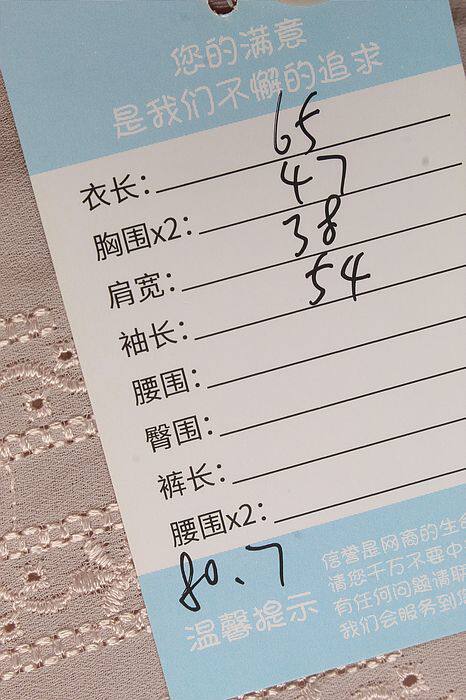 您的满意
是我们不懈的追求
衣长：65
胸围x2：47
肩宽：38
袖长：54
腰围：
臀围：
裤长：
腰围x2：
80.7
温馨提示
信誉是网商的生命
请您千万不要中
有任何问题请联
我们会服务到您